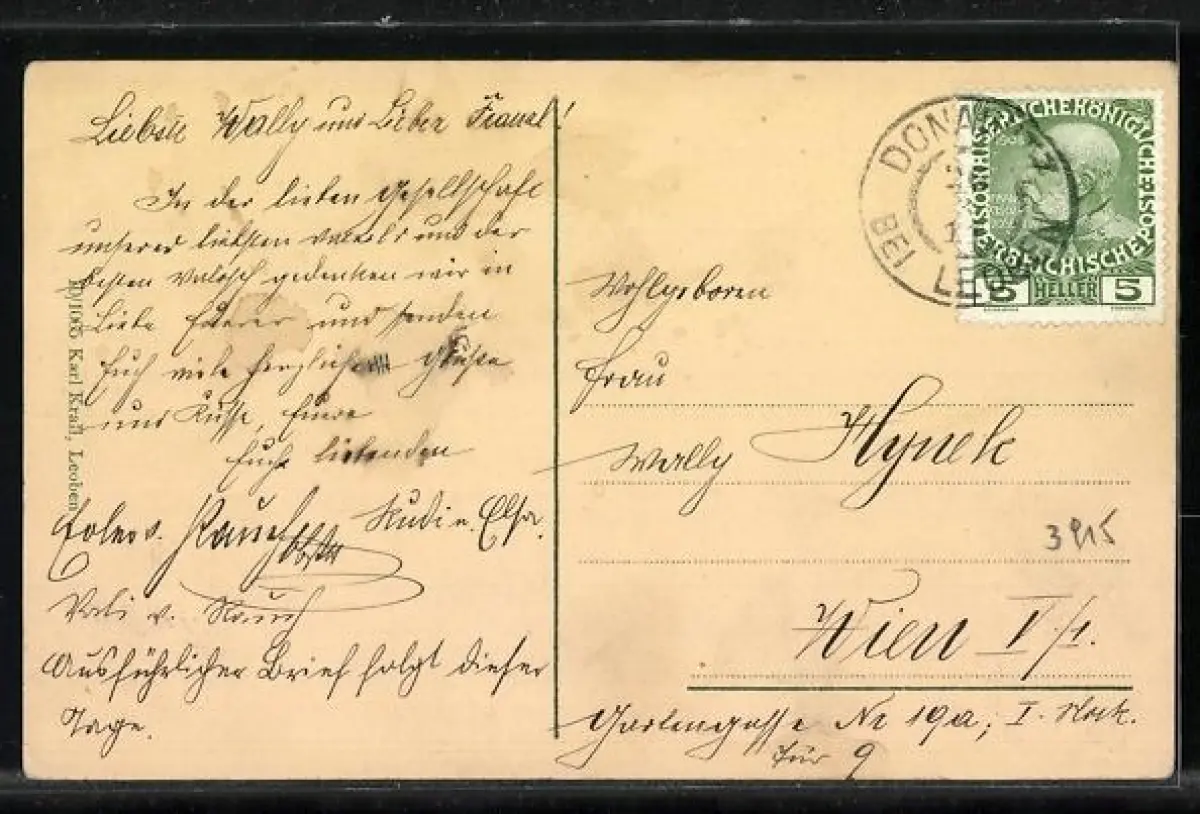 Liebste Wally und Lieber Franzl!
In der lieben Gesellschaft
unseres liebsten und der
besten gedenken wir in
Liebe Eurer und senden
Euch viele herzlichen Grüße
und Küsse, Eure
Euch liebenden
v. Rauch Rudi u. Elsa.
v. Rauch
Ausführlicher Brief folgt dieser
Tage.
10/1065 Karl Krall, Leoben
DONAWITZ
BEI LEOBEN
KAISERLICHE KÖNIGLICHE
ÖSTERREICHISCHE POST
5 HELLER 5
Wohlgeboren
Frau
Wally Hynek
3915
Wien V/1.
Gartengasse Nr 19a; I. Stock.
Tür 9